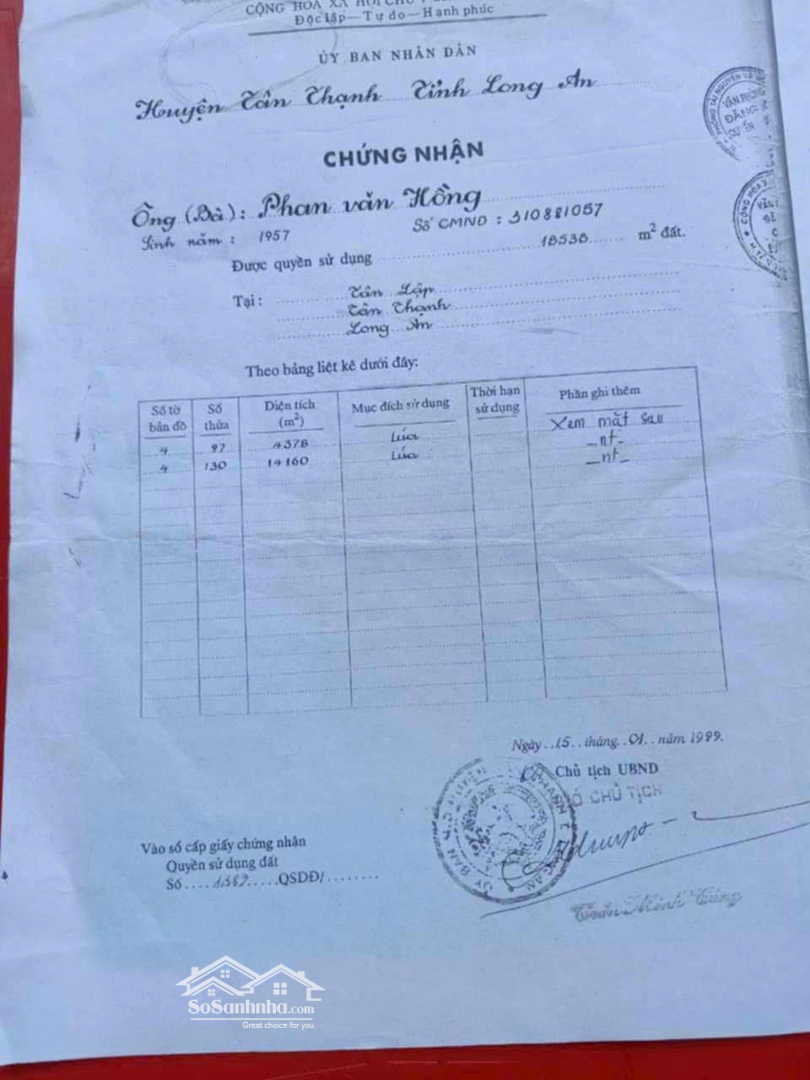 CỘNG HÒA XÃ HỘI CHỦ
Độc lập - Tự do - Hạnh phúc
ỦY BAN NHÂN DÂN
Huyện Tân Thạnh Tỉnh Long An
CHỨNG NHẬN
Ông (Bà): Phan Văn Hồng
Sinh năm: 1957 Số CMND: 310881057
Được quyền sử dụng 18538 m² đất.
Tại: Tân Lập
Tân Thạnh
Long An
Theo bảng liệt kê dưới đây:
Số tờ bản đồ Số thửa Diện tích (m²) Mục đích sử dụng Thời hạn sử dụng Phần ghi thêm
Xem mặt sau
4 97 4378 Lúa _nt_
4 130 14160 Lúa _nt_
Ngày 15 tháng 01 năm 1999.
Chủ tịch UBND
PHÓ CHỦ TỊCH
Vào sổ cấp giấy chứng nhận
Quyền sử dụng đất
Số QSDĐ/
SoSanhnha.com
Great choice for you